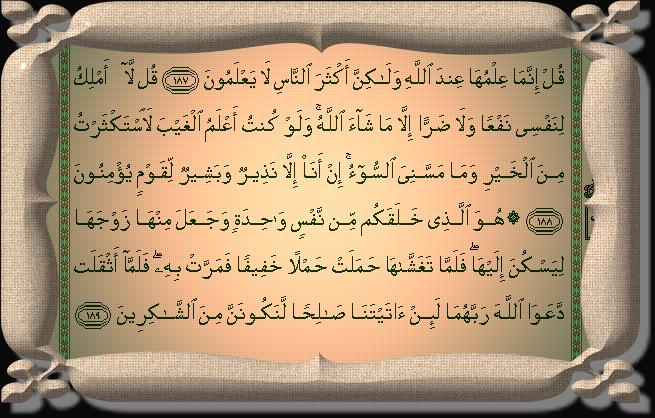 قُلْ إِنَّمَا عِلْمُهَا عِندَ ٱللَّهِ وَلَـٰكِنَّ أَكْثَرَ ٱلنَّاسِ لَا يَعْلَمُونَ ١٨٧ قُل لَّآ أَمْلِكُ
لِنَفْسِى نَفْعًا وَلَا ضَرًّا إِلَّا مَا شَآءَ ٱللَّهُ ۚ وَلَوْ كُنتُ أَعْلَمُ ٱلْغَيْبَ لَٱسْتَكْثَرْتُ
مِنَ ٱلْخَيْرِ وَمَا مَسَّنِىَ ٱلسُّوٓءُ ۚ إِنْ أَنَا۠ إِلَّا نَذِيرٌ وَبَشِيرٌ لِّقَوْمٍ يُؤْمِنُونَ
١٨٨ ۞ هُوَ ٱلَّذِى خَلَقَكُم مِّن نَّفْسٍ وَٰحِدَةٍ وَجَعَلَ مِنْهَا زَوْجَهَا
لِيَسْكُنَ إِلَيْهَا ۖ فَلَمَّا تَغَشَّىٰهَا حَمَلَتْ حَمْلًا خَفِيفًا فَمَرَّتْ بِهِۦ ۖ فَلَمَّآ أَثْقَلَت
دَّعَوَا ٱللَّهَ رَبَّهُمَا لَئِنْ ءَاتَيْتَنَا صَـٰلِحًا لَّنَكُونَنَّ مِنَ ٱلشَّـٰكِرِينَ ١٨٩